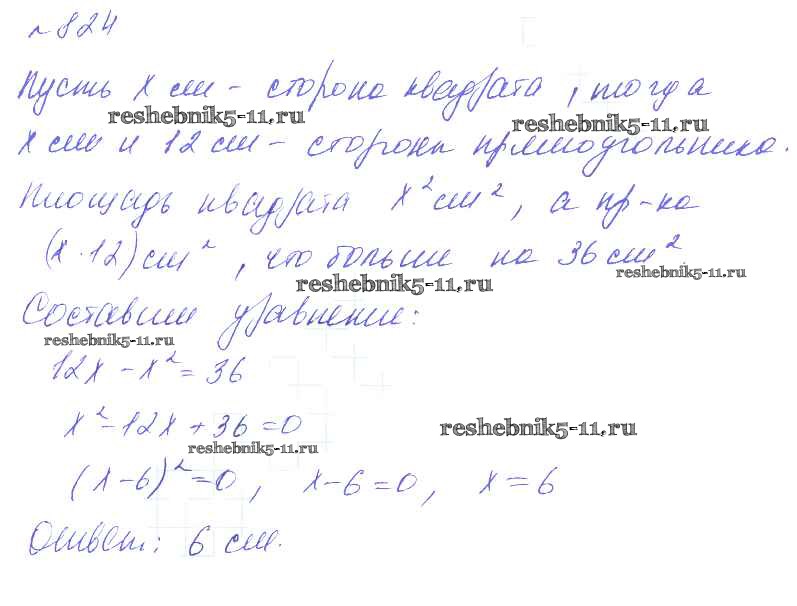 № 824
Пусть x см – сторона квадрата, тогда
reshebnik5-11.ru
reshebnik5-11.ru
x см и 12 см – стороны прямоугольника.
Площадь квадрата x² см², а пр-ка
(x · 12) см², что больше на 36 см²
reshebnik5-11.ru
reshebnik5-11.ru
Составим уравнение:
reshebnik5-11.ru
12x – x² = 36
x² – 12x + 36 = 0
reshebnik5-11.ru
reshebnik5-11.ru
(x – 6)² = 0, x – 6 = 0, x = 6
Ответ: 6 см.